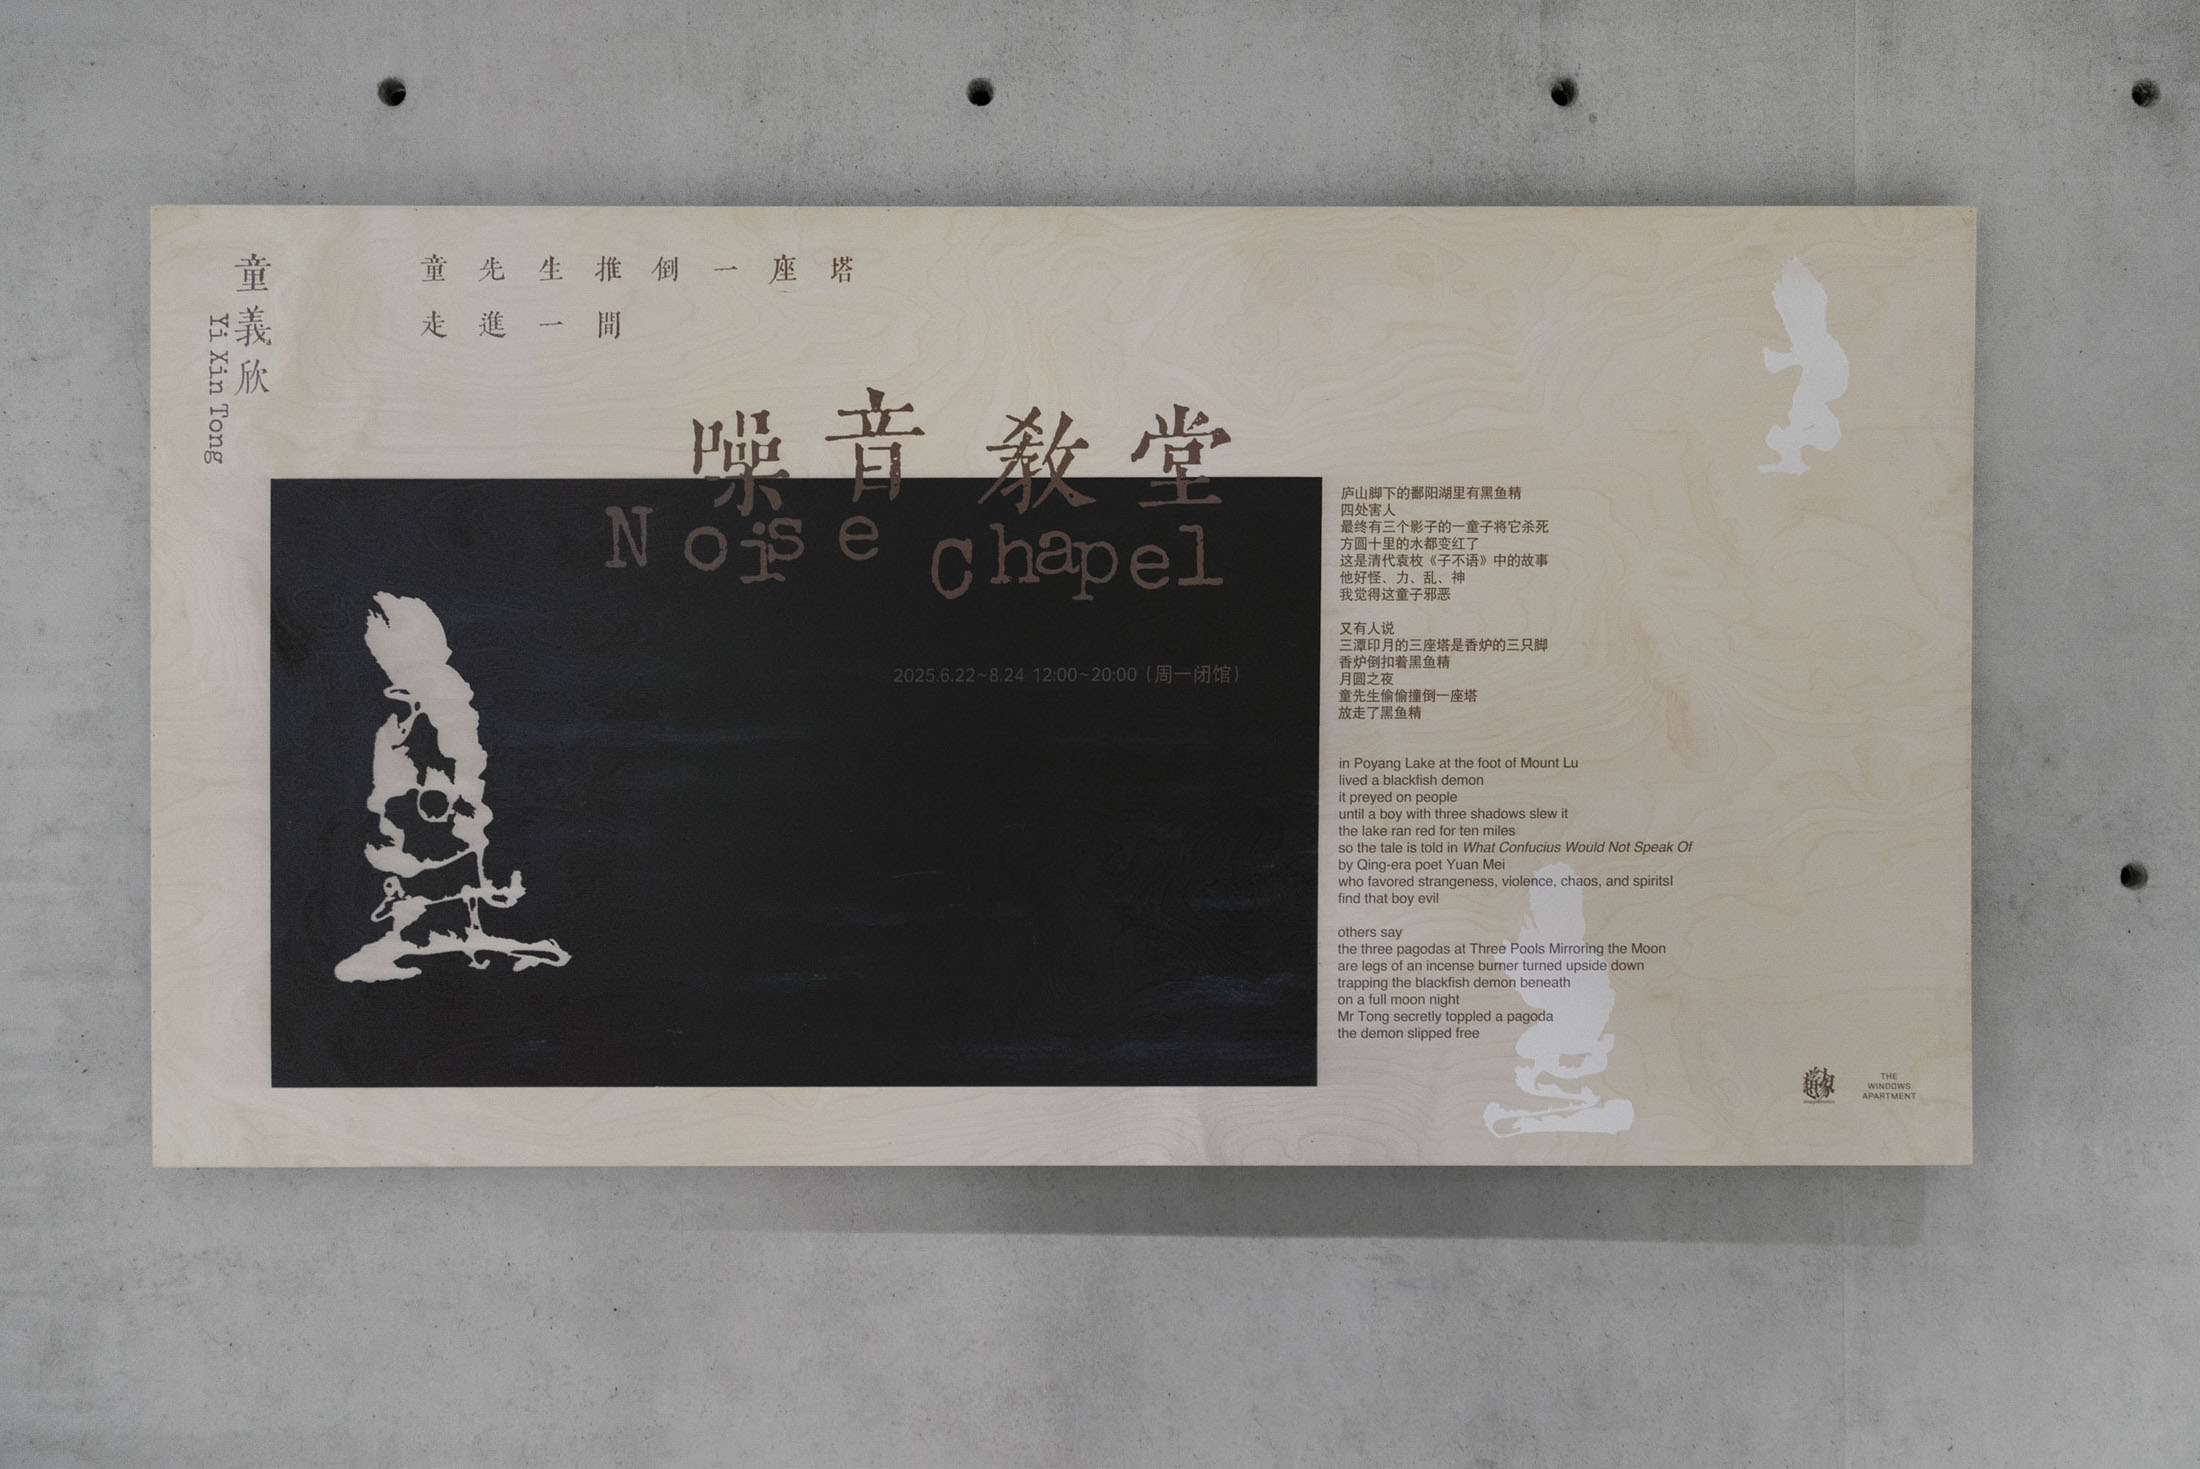 童義欣
Yi Xin Tong
童先生推倒一座塔
走進一間
噪音教堂
Noise Chapel
2025.6.22~8.24 12:00~20:00（周一闭馆）
庐山脚下的鄱阳湖里有黑鱼精
四处害人
最终有三个影子的一童子将它杀死
方圆十里的水都变红了
这是清代袁枚《子不语》中的故事
他好怪、力、乱、神
我觉得这童子邪恶
又有人说
三潭印月的三座塔是香炉的三只脚
香炉倒扣着黑鱼精
月圆之夜
童先生偷偷撞倒一座塔
放走了黑鱼精
in Poyang Lake at the foot of Mount Lu
lived a blackfish demon
it preyed on people
until a boy with three shadows slew it
the lake ran red for ten miles
so the tale is told in What Confucius Would Not Speak Of
by Qing-era poet Yuan Mei
who favored strangeness, violence, chaos, and spiritsI
find that boy evil
others say
the three pagodas at Three Pools Mirroring the Moon
are legs of an incense burner turned upside down
trapping the blackfish demon beneath
on a full moon night
Mr Tong secretly toppled a pagoda
the demon slipped free
THE
WINDOWS
APARTMENT